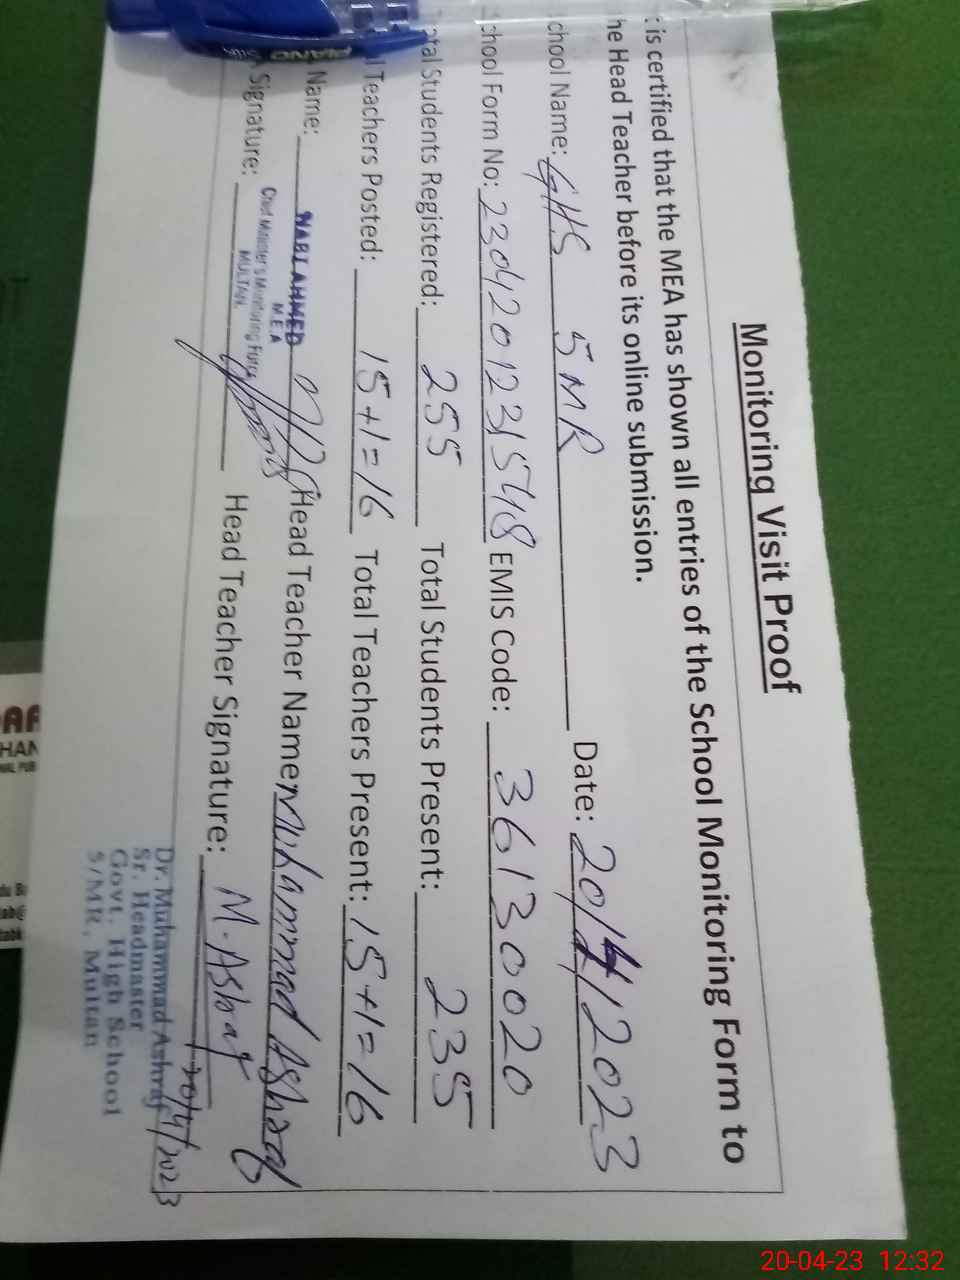 Monitoring Visit Proof
t is certified that the MEA has shown all entries of the School Monitoring Form to
he Head Teacher before its online submission.
chool Name: GHS 5 MR Date: 20/4/2023
chool Form No: 2304201231548 EMIS Code: 36130020
tal Students Registered: 255 Total Students Present: 235
l Teachers Posted: 15+1=16 Total Teachers Present: 15+1=16
Name: Head Teacher Name: Muhammad Ashraf
AHMED
M E A
Chief Minister's Monitoring Force
MULTAN.
Signature: Head Teacher Signature: M. Ashraf
20/4/2023
Dr. Muhammad Ashraf
Sr. Headmaster
Govt. High School
5/MR, Multan
PIANO
HAN
20-04-23 12:32